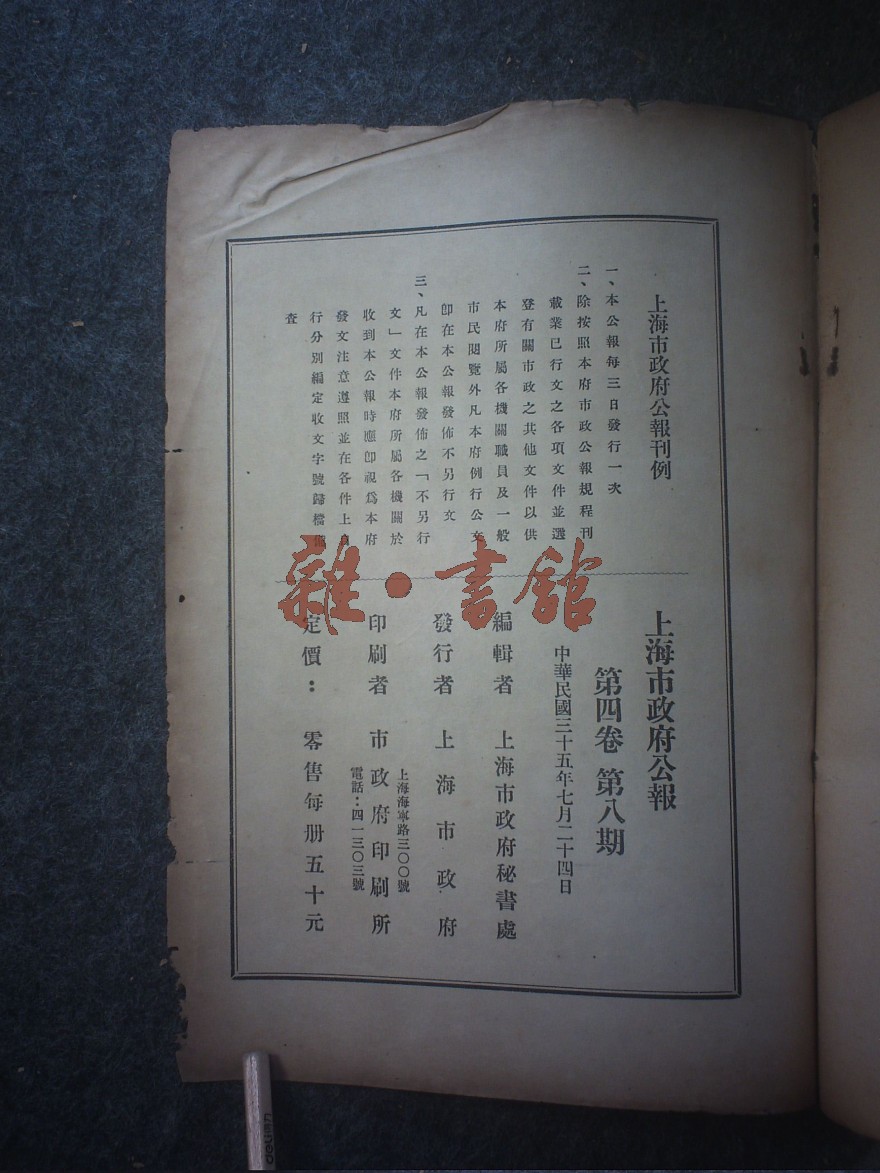 上海市政府公報刊例
一、本公報每三日發行一次
二、除按照本府市政公報規程刊
載業已行文之各項文件並選
登有關市政之其他文件以供
本府所屬各機關職員及一般
市民閱覽外凡本府例行公文
卽在本公報發佈不另行文
三、凡在本公報發佈之「不另行
文」文件本府所屬各機關於
收到本公報時應卽視爲本府
發文注意遵照並在各件上
行分別編定收文字號歸檔備
查
上海市政府公報
第四卷 第八期
中華民國三十五年七月二十四日
編輯者 上海市政府秘書處
發行者 上海市政府
上海海寧路三〇〇號
印刷者 市政府印刷所
電話：四一三〇三號
定價： 零售每册五十元
雜·書館
deli